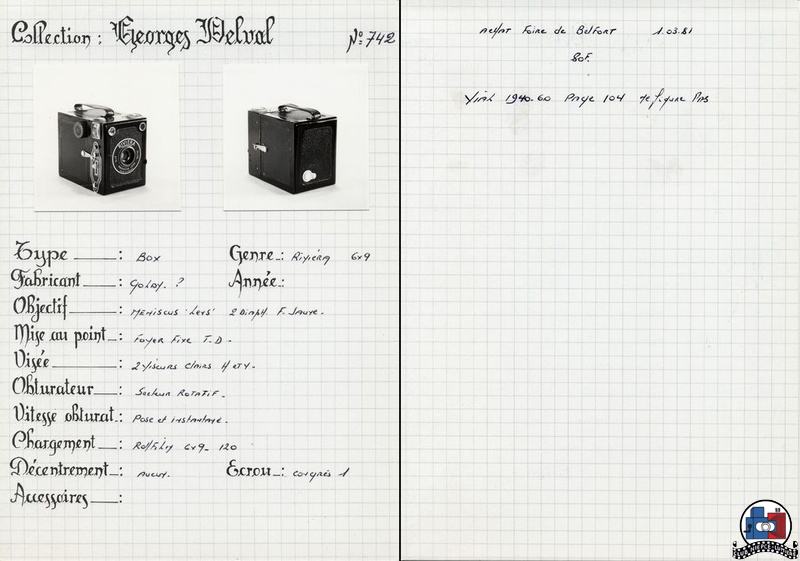 Collection : Georges Delval N°: 742
Type : Box Genre : Riviéra 6x9
Fabricant : Goldy. ? Année :
Objectif : Meniscus 'Lens' 2 Diaph. F. Jaune.
Mise au point : Foyer Fixe T.D.
Visée : 2 Viseurs clairs H et V.
Obturateur : Secteur Rotatif.
Vitesse obturat. : Pose et instantané.
Chargement : Rollfilm 6x9 - 120
Décentrement : aucun. Ecrou : congrès 1
Accessoires :
Achat Foire de Belfort 1.03.81
80F.
Vial 1940-60 Page 104 ne figure Pas